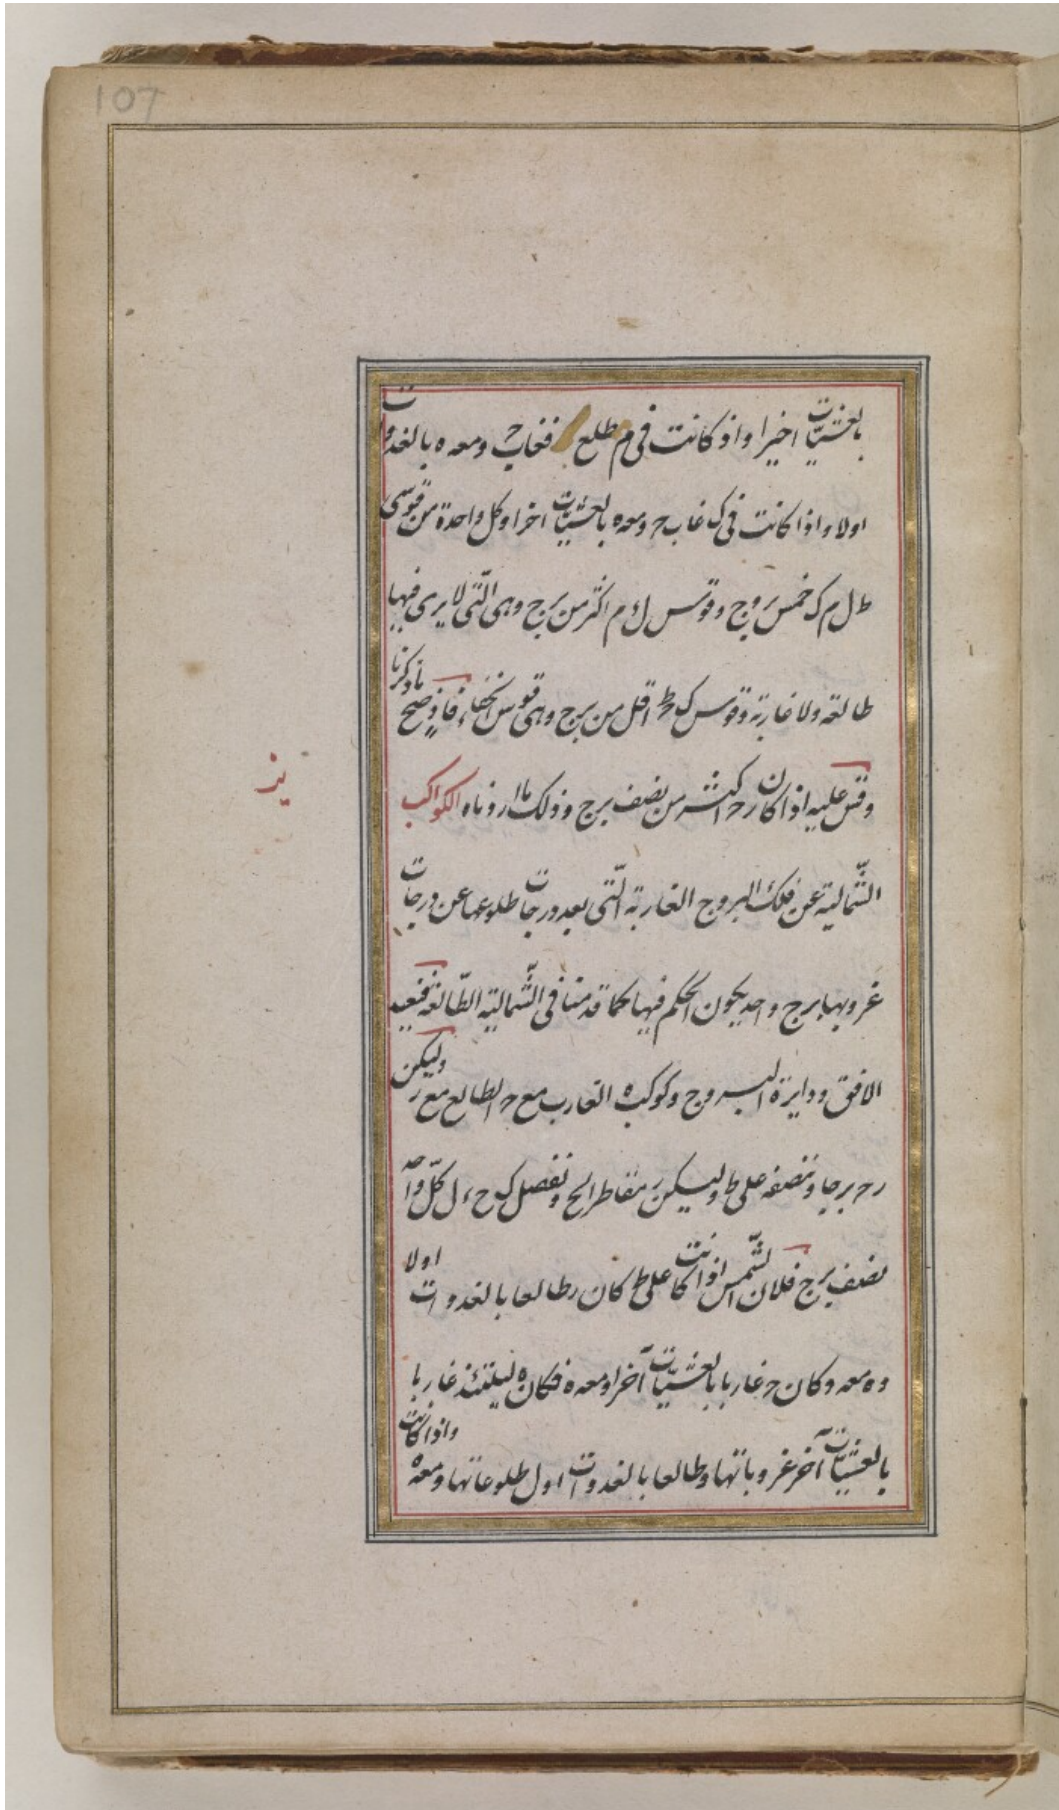 107
بالعشيات اخيرا واذ كانت في م طلع فغاب ح ومعه ه بالغدوات
اولا واذا كانت في ك غاب ح ومعه ه بالعشيات اخرا وكل واحدة من قوسى
ط ل م ك خمس بروج وقوس ل م اكثر من برج وهى الّتى لا يرى فيها
طالعة ولا غاربة وقوس ك ط اقل من برج وهى قوس الخفاء فاذ وضح ما ذكرنا
وقس عليه اذا كان ر ح اكثر من نصف برج وذلك ما اردناه الكواكب
يز
الشّمالية عن فلك البروج الغاربة الّتى بعد درجات طلوعها عن درجات
غروبها برج واحد يكون الحكم فيها كما قدمنا فى الشّمالية الطّالعة فنعيد
الافق ودايرة البروج وكوكب ه الغارب مع ح الطالع مع ر وليكن
ر ح برجا وننصفه على ط وليكن مقاطر الح ونفصل ك ح ل كلّ واحد
نصف برج فلان الشّمس اذا كانت على ط كان ر طالعا بالغدوات اولا
وه معه وكان ح غاربا بالعشيّات آخرا ومعه ه فكان ه ليلتئذ غاربا
بالعشيّات آخر غروباتها وطالعا بالغدوات اول طلوعاتها ومعه ه واذا كانت